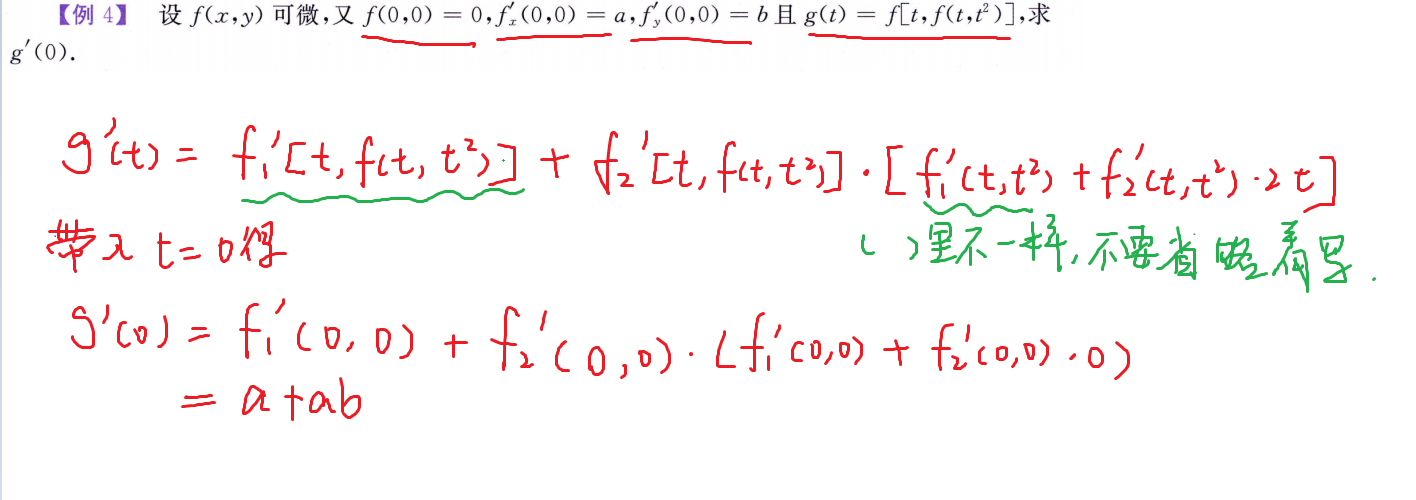 【例 4】 设 f(x,y) 可微,又 f(0,0) = 0,f′ₓ(0,0) = a,f′ᵧ(0,0) = b 且 g(t) = f[t,f(t,t²)],求
g′(0).
g′(t) = f₁′[t, f(t, t²)] + f₂′[t, f(t, t²)]·[f₁′(t,t²) + f₂′(t,t²)·2t]
带入 t=0得
( )里不一样,不要省略着写.
g′(0) = f₁′(0,0) + f₂′(0,0)·(f₁′(0,0) + f₂′(0,0)·0)
= a+ab